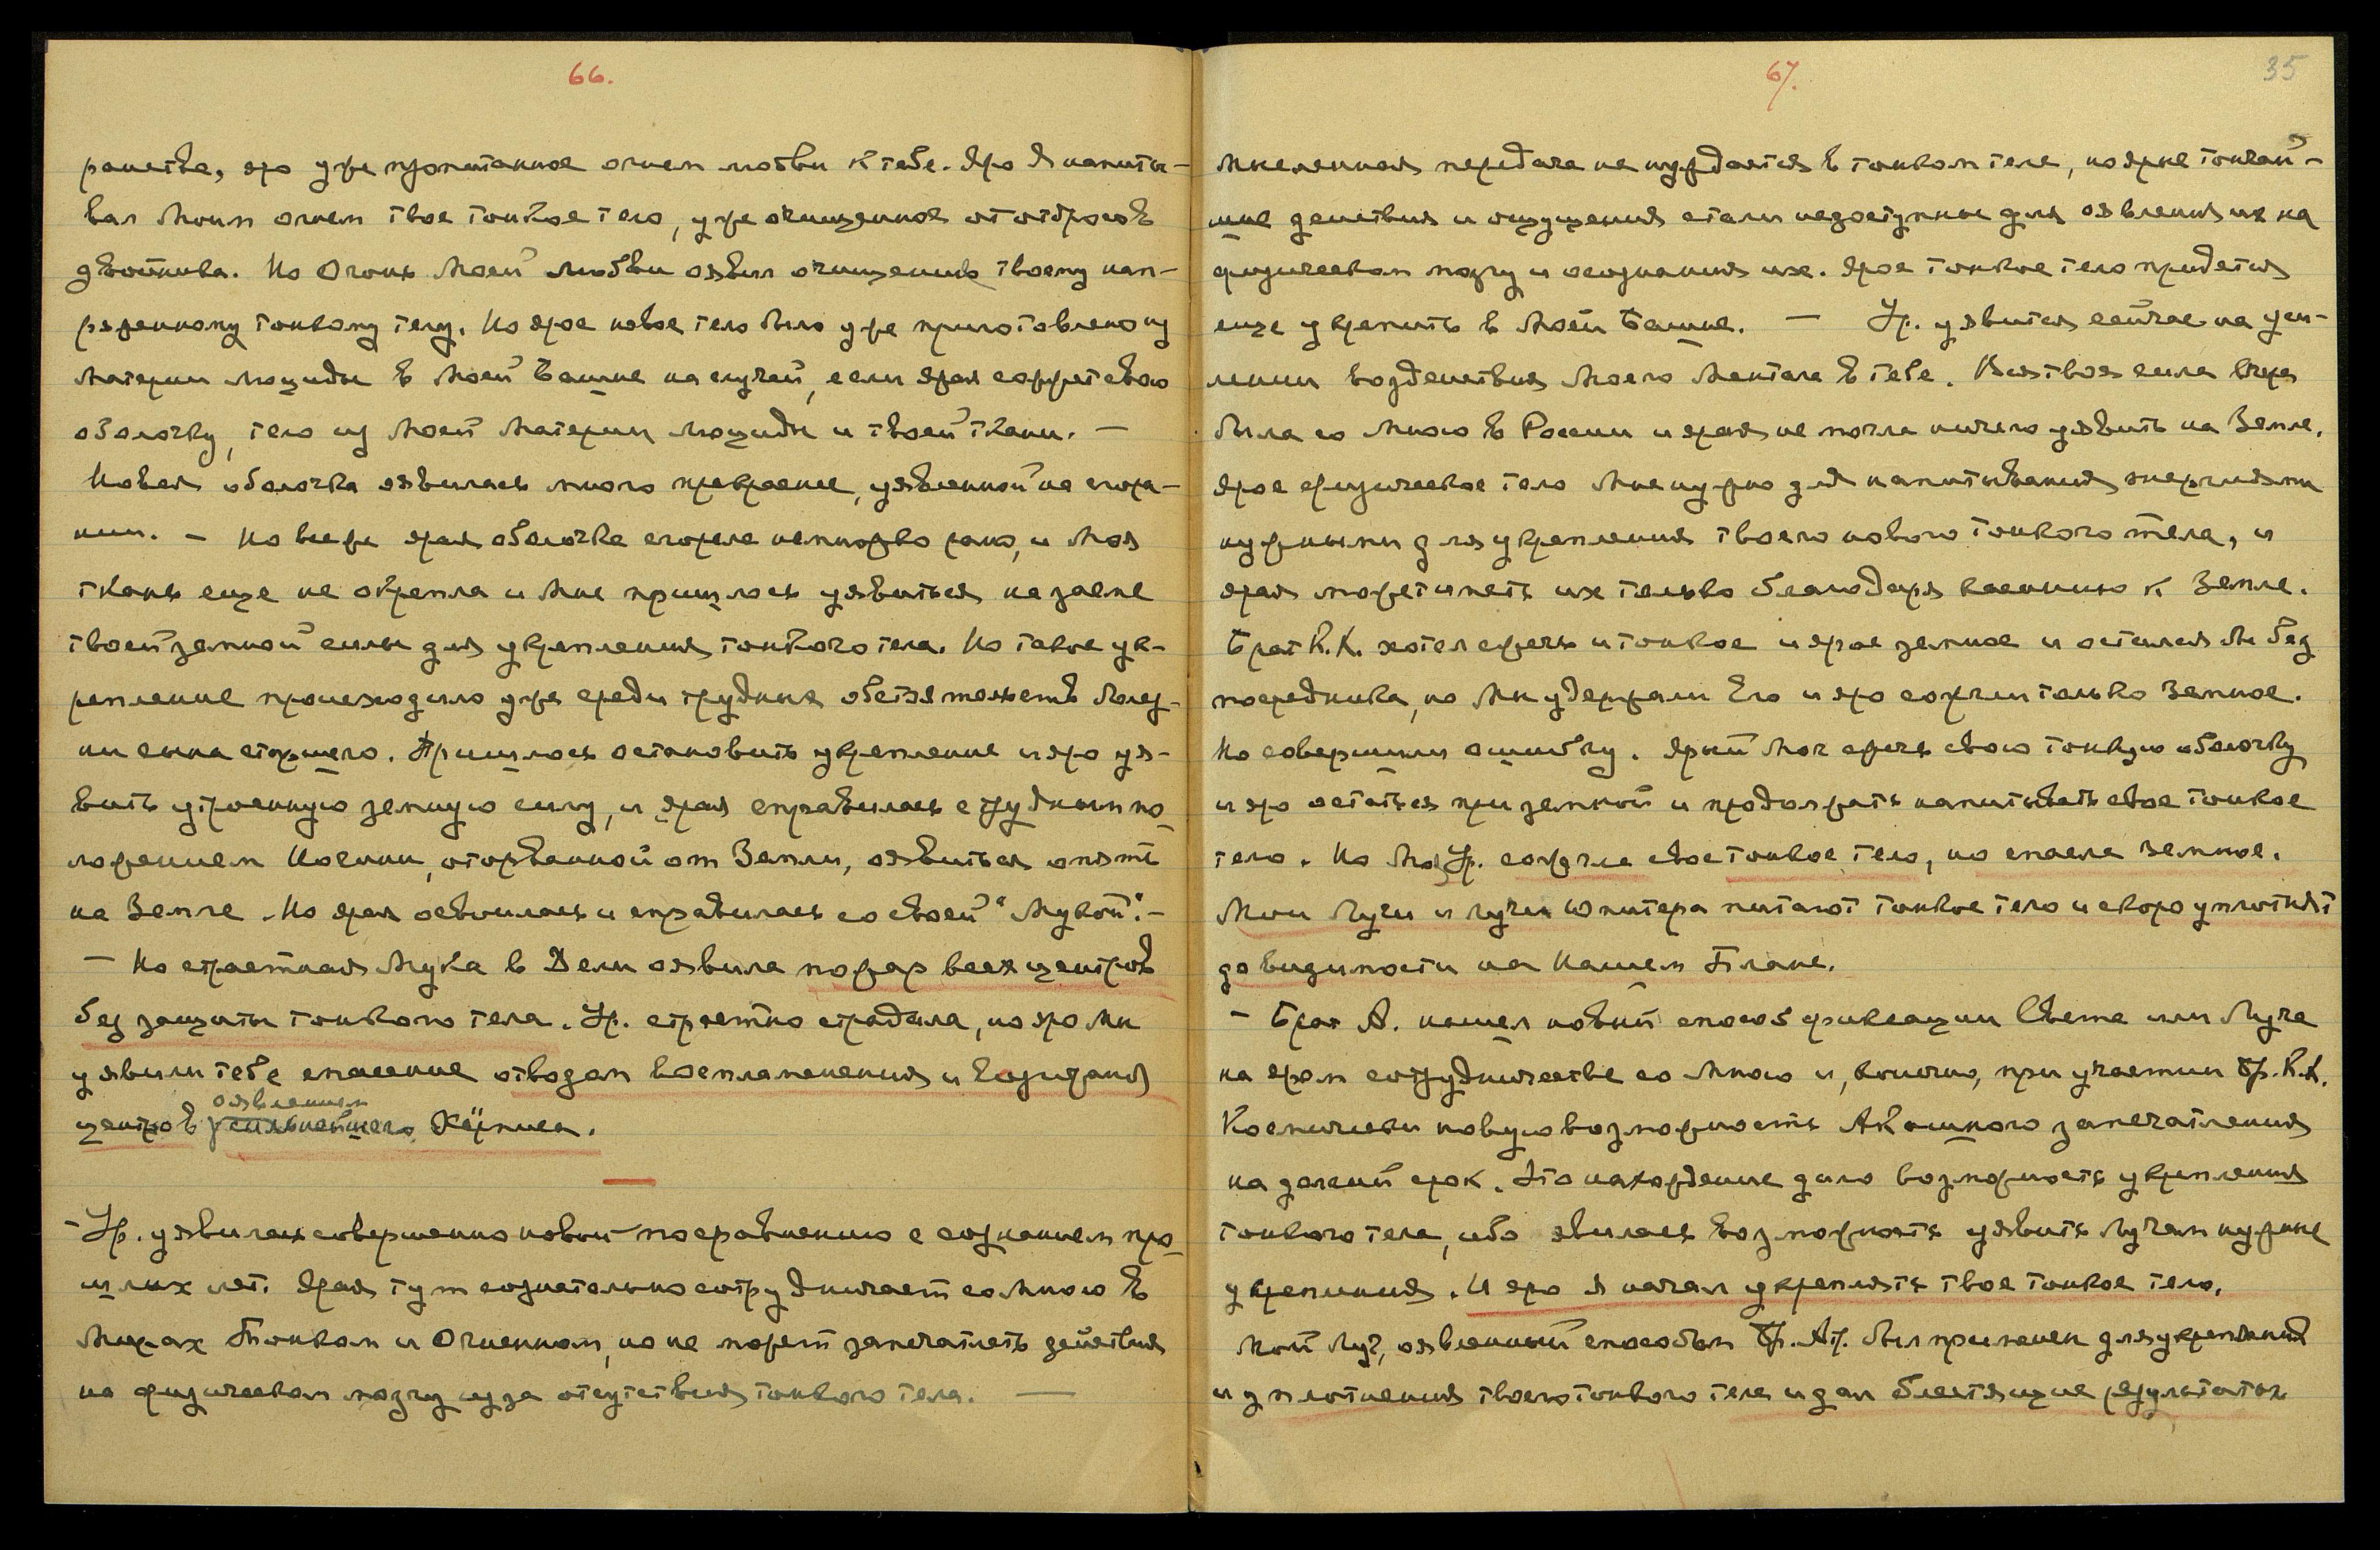 66.
ранства, яро уже пропитанное огнем любви к тебе. Яро Я напиты-
вал Моим огнем твое тонкое тело, уже очищенное от отбросов
двойника. Но Огонь Моей Любви оявил очищение твоему нап-
ряженному тонкому телу. Но ярое новое тело было уже приготовлено из
Материи Люциды в Моей Башне на случай, если ярая сожжет свою
оболочку, тело из Моей Материи Люциды и твоей ткани. —
Новая оболочка оявилась много прекраснее, уявленной на сгора-
нии. — Но все же ярая оболочка сгорела немножко рано, и Моя
ткань еще не окрепла и Мне пришлось уявиться на заеме
твоей земной силы для укрепления тонкого тела. Но такое ук-
репление происходило уже среди трудных обстоятельств болез-
ни сына старшего. Пришлось остановить укрепление и яро уя-
вить утроенную земную силу, и ярая справилась с трудным по-
ложением Космии, оторванной от Земли, оявиться опять
на Земле. Но ярая освоилась и справилась со своей "Мукой". —
— Но страстная Мука в Дели оявила пожар всех центров
без защиты тонкого тела. Ур. страстно страдала, но яро Мы
уявили тебе спасение отводом воспламенения и
центров оявлением сильнейшего Кёрниса.
— Ур. уявилась совершенно новой по сравнению с сознанием про-
шлых лет. Ярая тут сознательно сотрудничает со Мною в
Мирах Тонком и Огненном, но не может запечатлеть действия
на физическом мозгу из за отсутствия тонкого тела. —
67. 35
Мысленная передача не нуждается в тонком теле, но ярые тончай-
шие действия и ощущения стали недоступны для оявления их на
физическом мозгу и осознания их. Ярое тонкое тело придется
еще укрепить в Моей Башне. — Ур. уявится сейчас на уси-
лении воздействия Моего Ментала в тебе. Вся твоя сила вчера
была со Мною в России и ярая не могла ничего уявить на Земле.
Ярое физическое тело Мне нужно для напитывания энергиями
нужными для укрепления твоего нового тонкого тела, и
ярая может иметь их только благодаря касанию к Земле.
Брат К.Х. хотел сжечь и тонкое и ярое земное и остался бы без
посредника, но Мы удержали Его и яро сожгли только Земное.
Но совершили ошибку. Ярый мог сжечь свою тонкую оболочку
и яро остаться при земной и продолжать напитывать свое тонкое
тело. Но Моя Ур. сожгла свое тонкое тело, но спасла Земное.
Мои Лучи и лучи Юпитера питают тонкое тело и скоро уплотнят
до видимости на Нашем Плане.
— Брат А. нашел новый способ фиксации Света или Луча
на яром сотрудничестве со Мною и, конечно, при участии Бр. К.Х.
Космически новую возможность Акашного запечатления
на долгий срок. Это нахождение дало возможность укрепления
тонкого тела, ибо явилась возможность уявить Лучам нужные
укрепления. И яро Я начал укреплять твое тонкое тело.
Мой Луч, оявленный способом Бр. Ал. был применен для укрепления
и уплотнения твоего тонкого тела и дал блестящие результаты